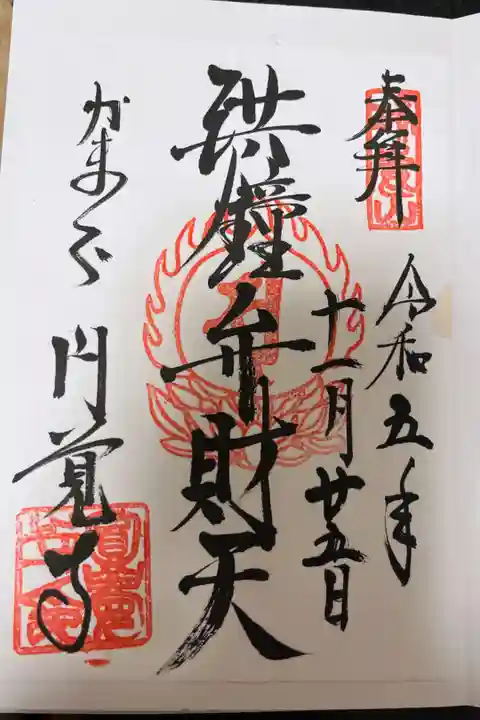 奉拝
令和五年
十一月廿五日
洪鐘弁財天
かまくら
円覚寺